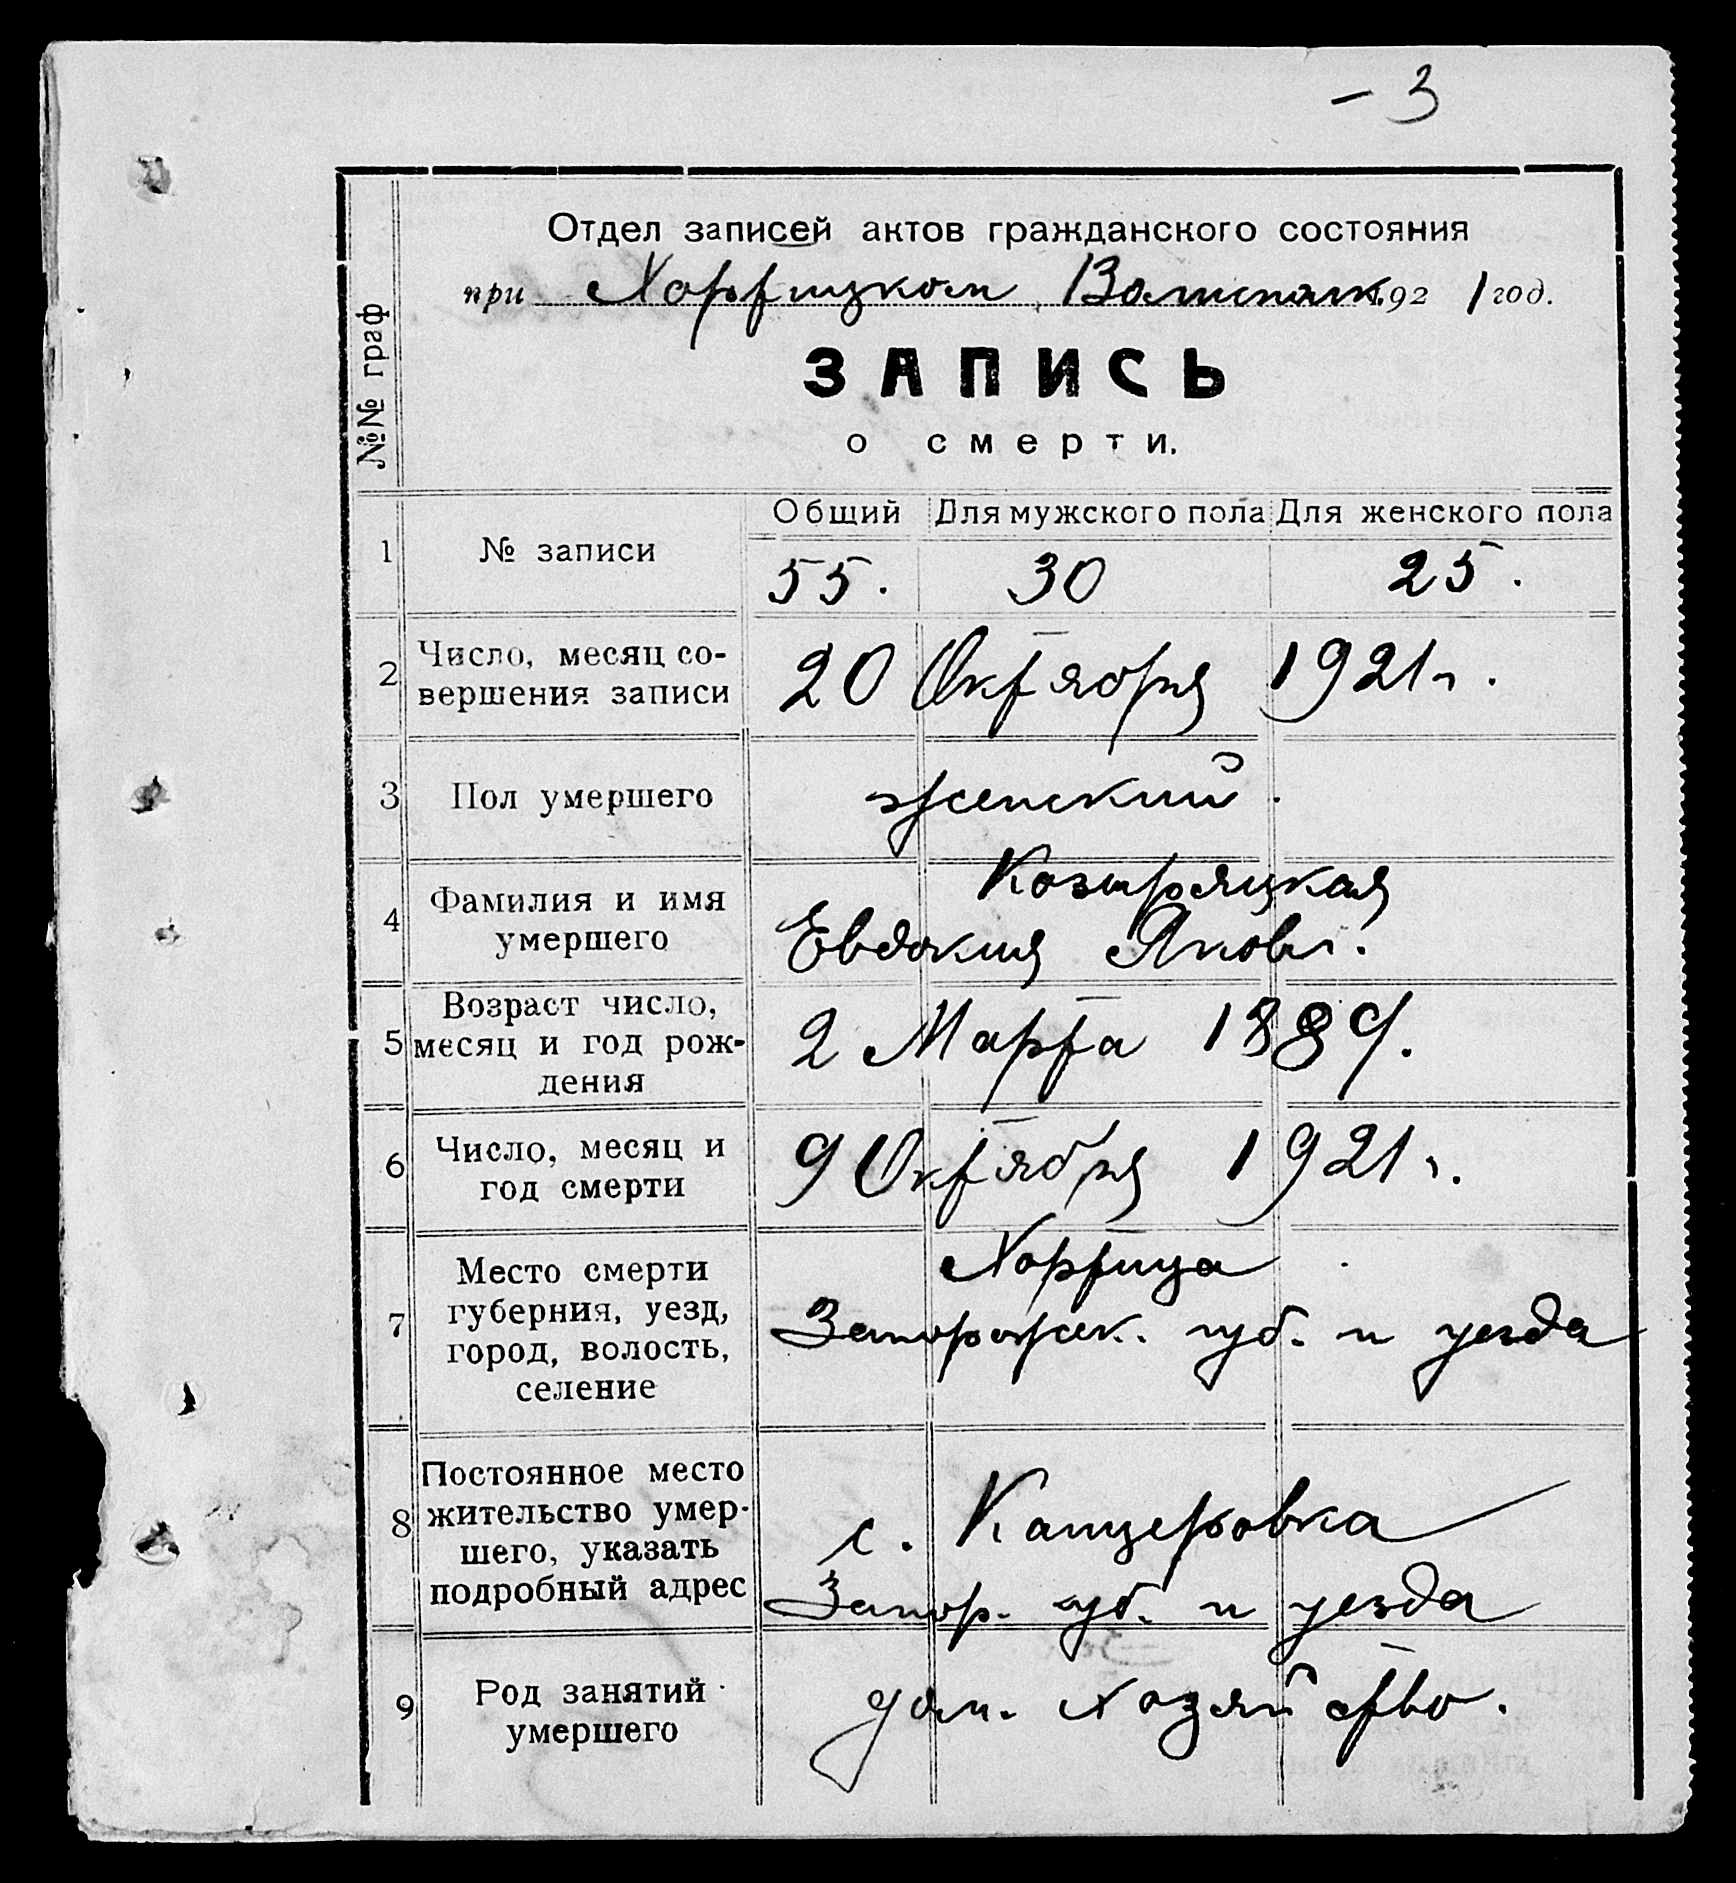 – 3
Отдел записей актов гражданского состояния
при Хортицком Волисполк. 1921 год.
№№ граф
ЗАПИСЬ
о смерти.
Общий Для мужского пола Для женского пола
1 № записи 55. 30 25.
2 Число, месяц со-
вершения записи
20 Октября 1921 г.
3 Пол умершего женский.
4 Фамилия и имя
умершего
Козыряцкая
Евдокия Яковл.
5 Возраст число,
месяц и год рож-
дения
2 Марта 1889.
6 Число, месяц и
год смерти
9 Октября 1921 г.
7 Место смерти
губерния, уезд,
город, волость,
селение
Хортица
Запорожск. губ. и уезда
8 Постоянное место
жительство умер-
шего, указать
подробный адрес
с. Канцеровка
Запор. губ. и уезда
9 Род занятий
умершего
дом. хозяйство.